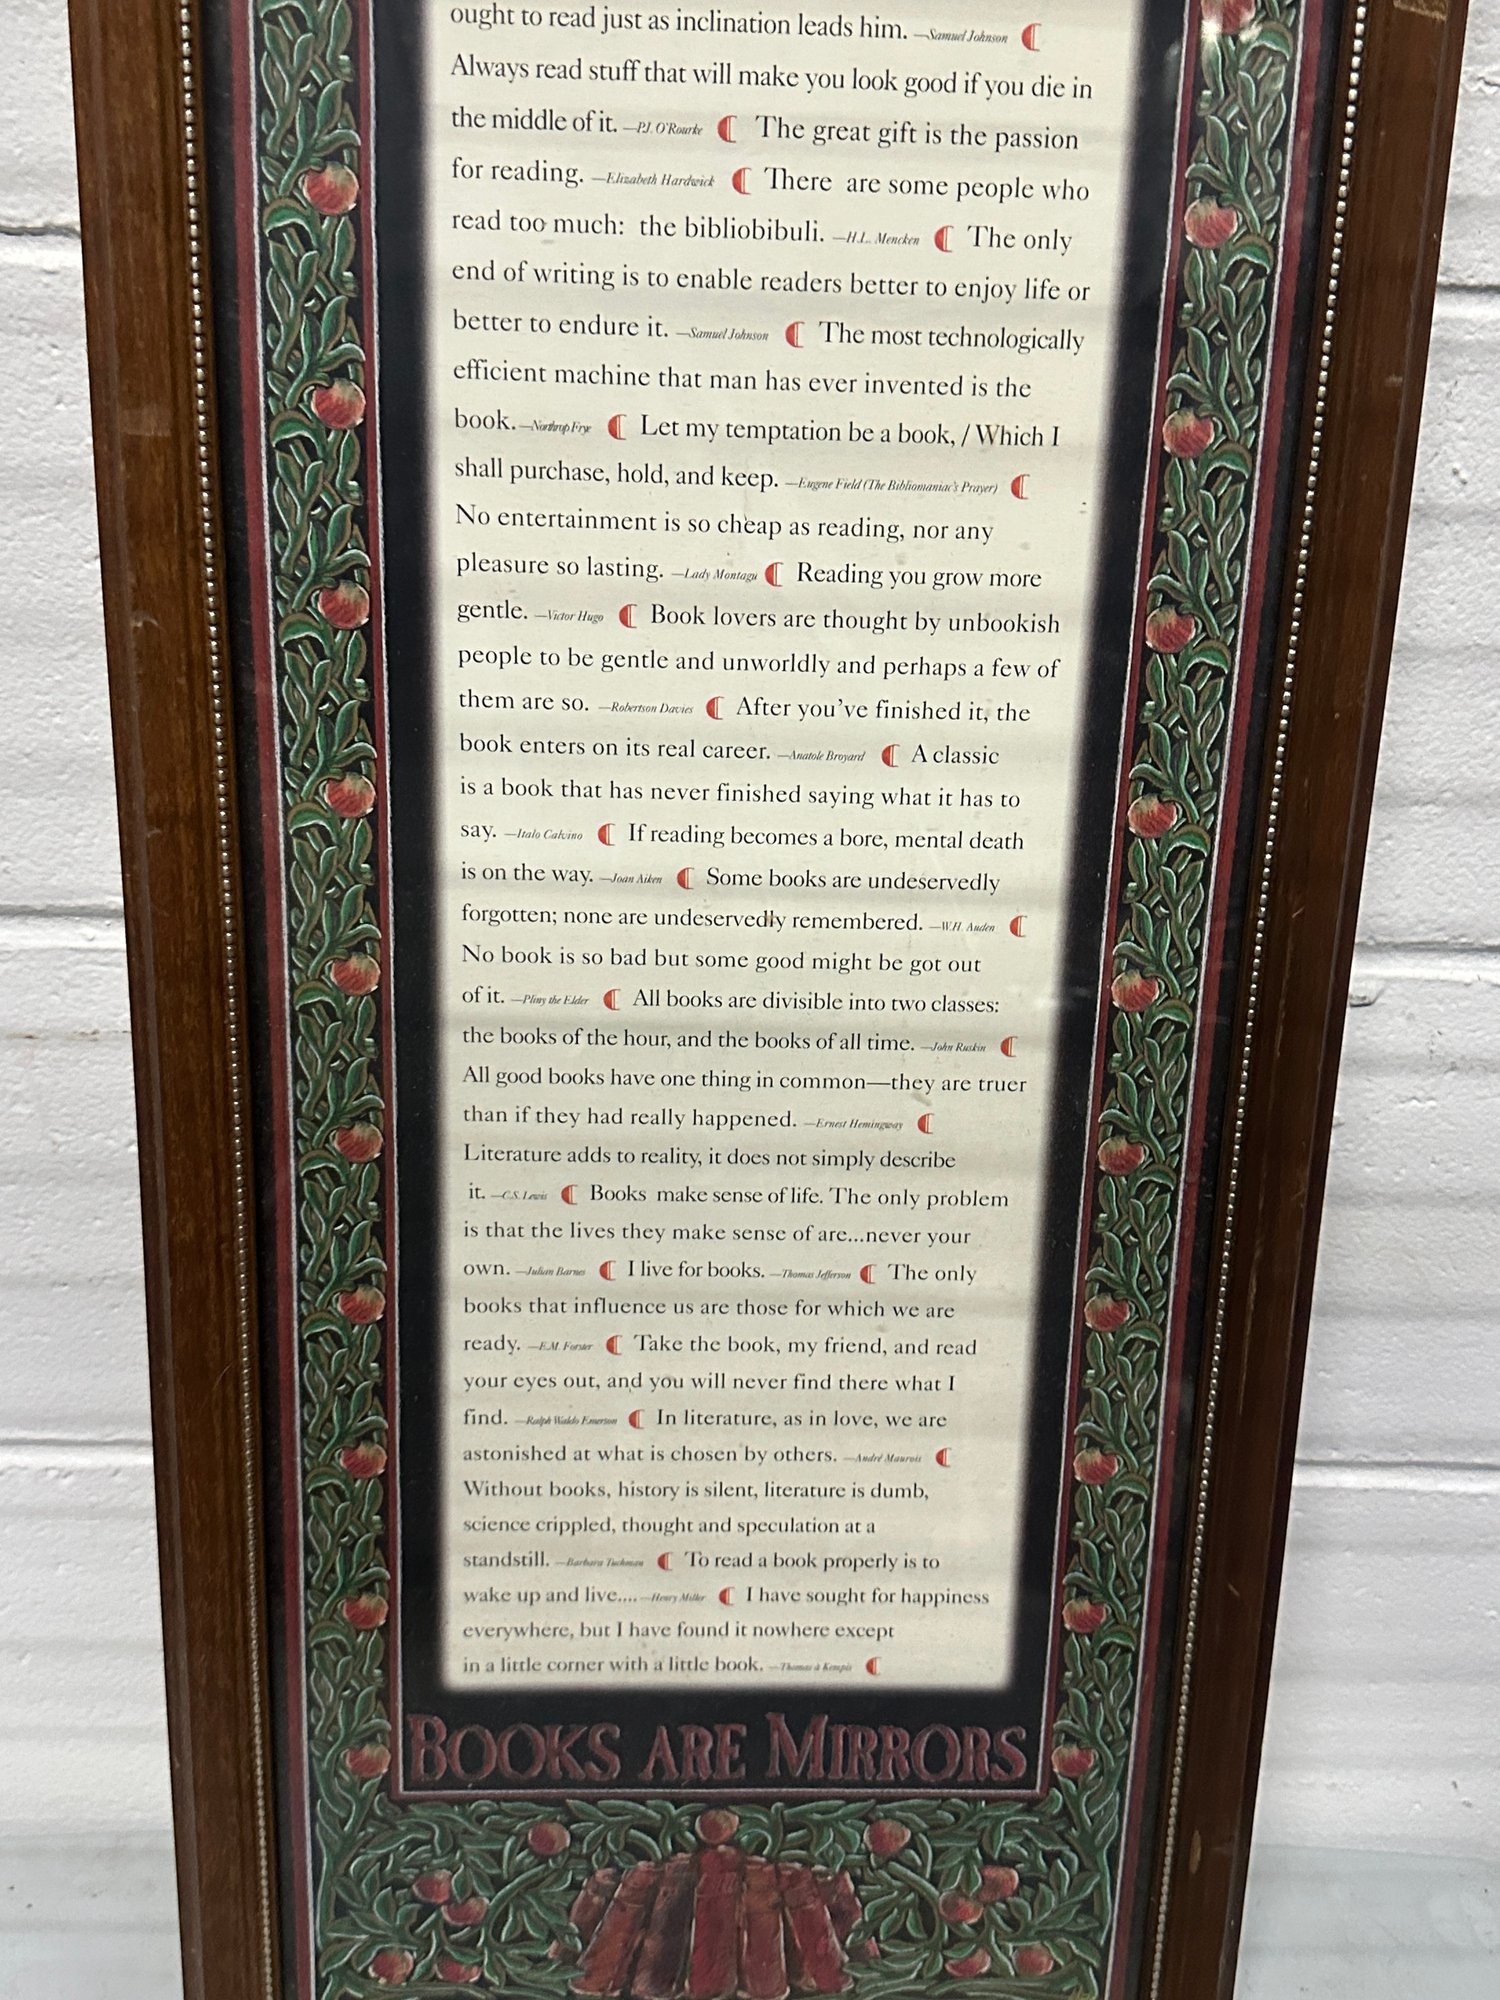 ought to read just as inclination leads him. —Samuel Johnson ¶
Always read stuff that will make you look good if you die in
the middle of it. —P.J. O'Rourke ¶ The great gift is the passion
for reading. —Elizabeth Hardwick ¶ There are some people who
read too much: the bibliobibuli. —H.L. Mencken ¶ The only
end of writing is to enable readers better to enjoy life or
better to endure it. —Samuel Johnson ¶ The most technologically
efficient machine that man has ever invented is the
book.—Northrop Frye ¶ Let my temptation be a book, / Which I
shall purchase, hold, and keep. —Eugene Field (The Bibliomaniac's Prayer) ¶
No entertainment is so cheap as reading, nor any
pleasure so lasting. —Lady Montagu ¶ Reading you grow more
gentle. —Victor Hugo ¶ Book lovers are thought by unbookish
people to be gentle and unworldly and perhaps a few of
them are so. —Robertson Davies ¶ After you've finished it, the
book enters on its real career. —Anatole Broyard ¶ A classic
is a book that has never finished saying what it has to
say. —Italo Calvino ¶ If reading becomes a bore, mental death
is on the way. —Joan Aiken ¶ Some books are undeservedly
forgotten; none are undeservedly remembered. —W.H. Auden ¶
No book is so bad but some good might be got out
of it. —Pliny the Elder ¶ All books are divisible into two classes:
the books of the hour, and the books of all time. —John Ruskin ¶
All good books have one thing in common—they are truer
than if they had really happened. —Ernest Hemingway ¶
Literature adds to reality, it does not simply describe
it. —C.S. Lewis ¶ Books make sense of life. The only problem
is that the lives they make sense of are...never your
own. —Julian Barnes ¶ I live for books. —Thomas Jefferson ¶ The only
books that influence us are those for which we are
ready. —E.M Forster ¶ Take the book, my friend, and read
your eyes out, and you will never find there what I
find. —Ralph Waldo Emerson ¶ In literature, as in love, we are
astonished at what is chosen by others. —André Maurois ¶
Without books, history is silent, literature is dumb,
science crippled, thought and speculation at a
standstill. —Barbara Tuchman ¶ To read a book properly is to
wake up and live.... —Henry Miller ¶ I have sought for happiness
everywhere, but I have found it nowhere except
in a little corner with a little book. —Thomas à Kempis ¶
BOOKS ARE MIRRORS